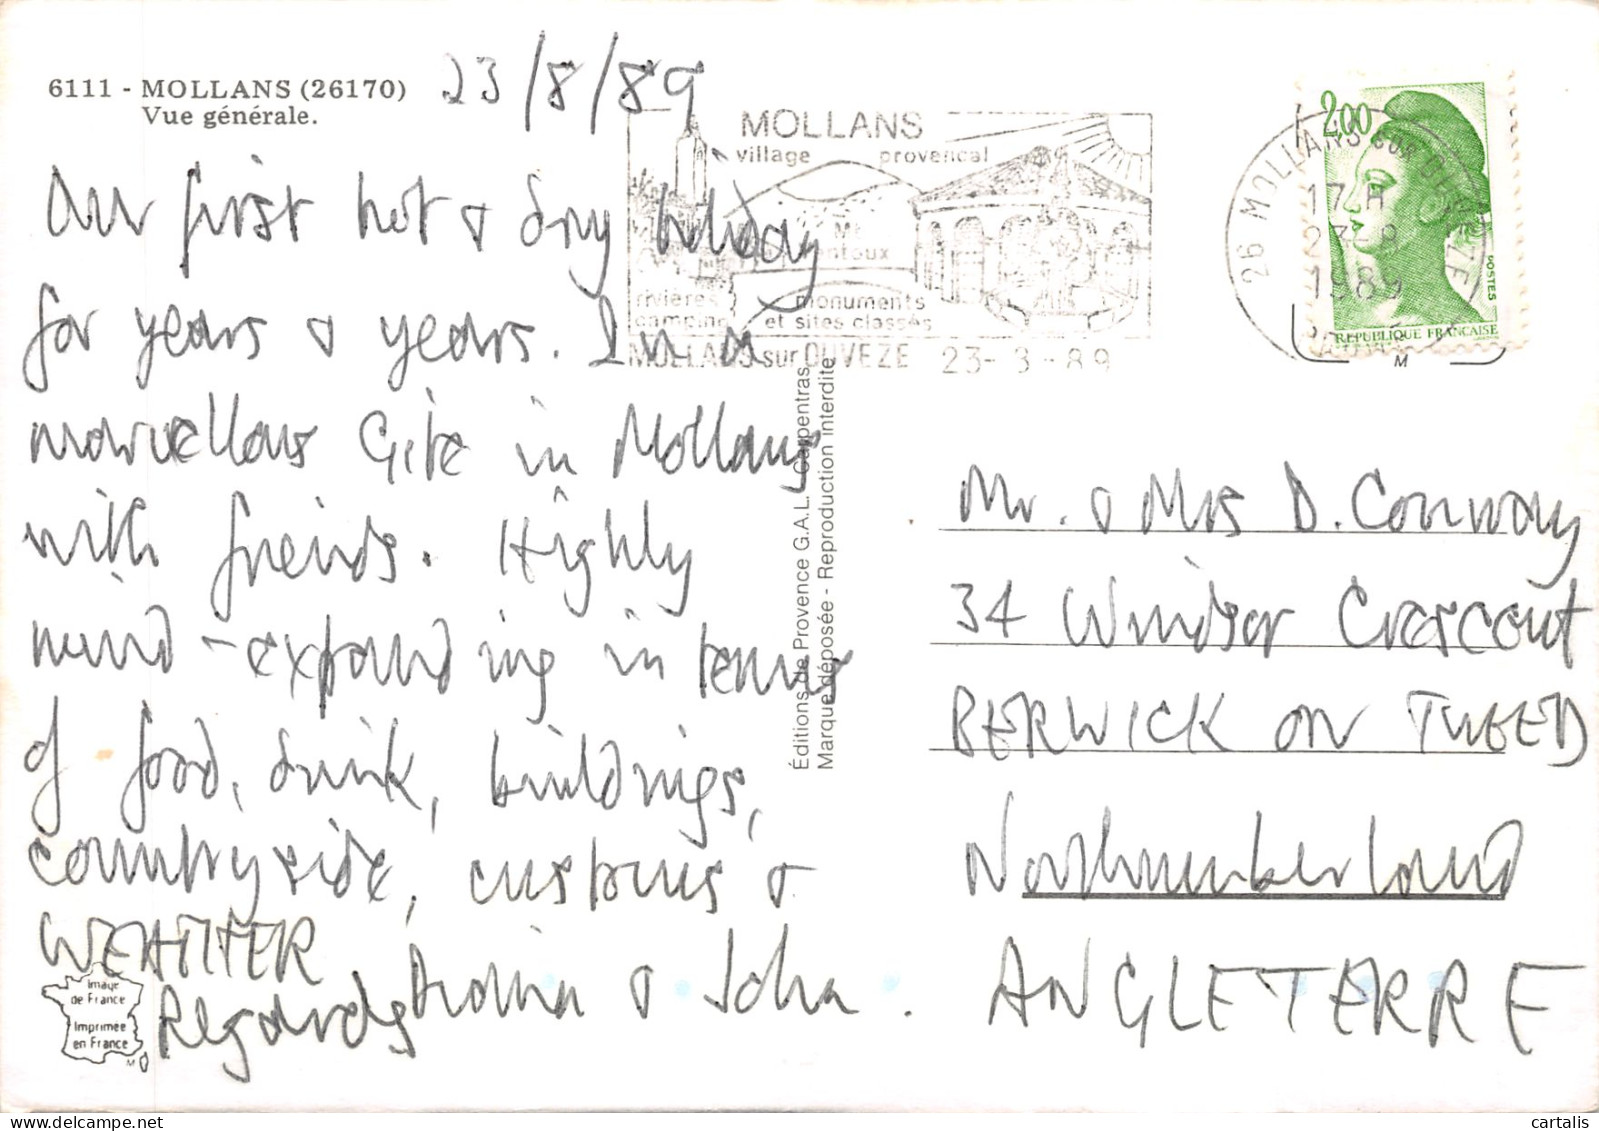 6111 - MOLLANS (26170)
Vue générale.
23/8/89
Our first hot & dry holiday
for years & years. In a
marvellous Gite in Mollans
with friends. Highly
mind-expanding in terms
of food, drink, buildings,
countryside, customs &
WEATHER
Regards & John.
Image
de France
Imprimée
en France
M
MOLLANS
village provencal
Mt
Ventoux
rivières
camping
monuments
et sites classés
MOLLANS sur OUVEZE 23-8-89
Éditions de Provence G.A.L. Carpentras
Marque déposée - Reproduction interdite
2,00
POSTES
REPUBLIQUE FRANCAISE
26 MOLLANS SUR OUVEZE
17 H
23-8
1989
M
Mr. & Mrs D. Conway
34 Windsor Crescent
BERWICK ON TWEED
Northumberland
ANGLETERRE
cartalis